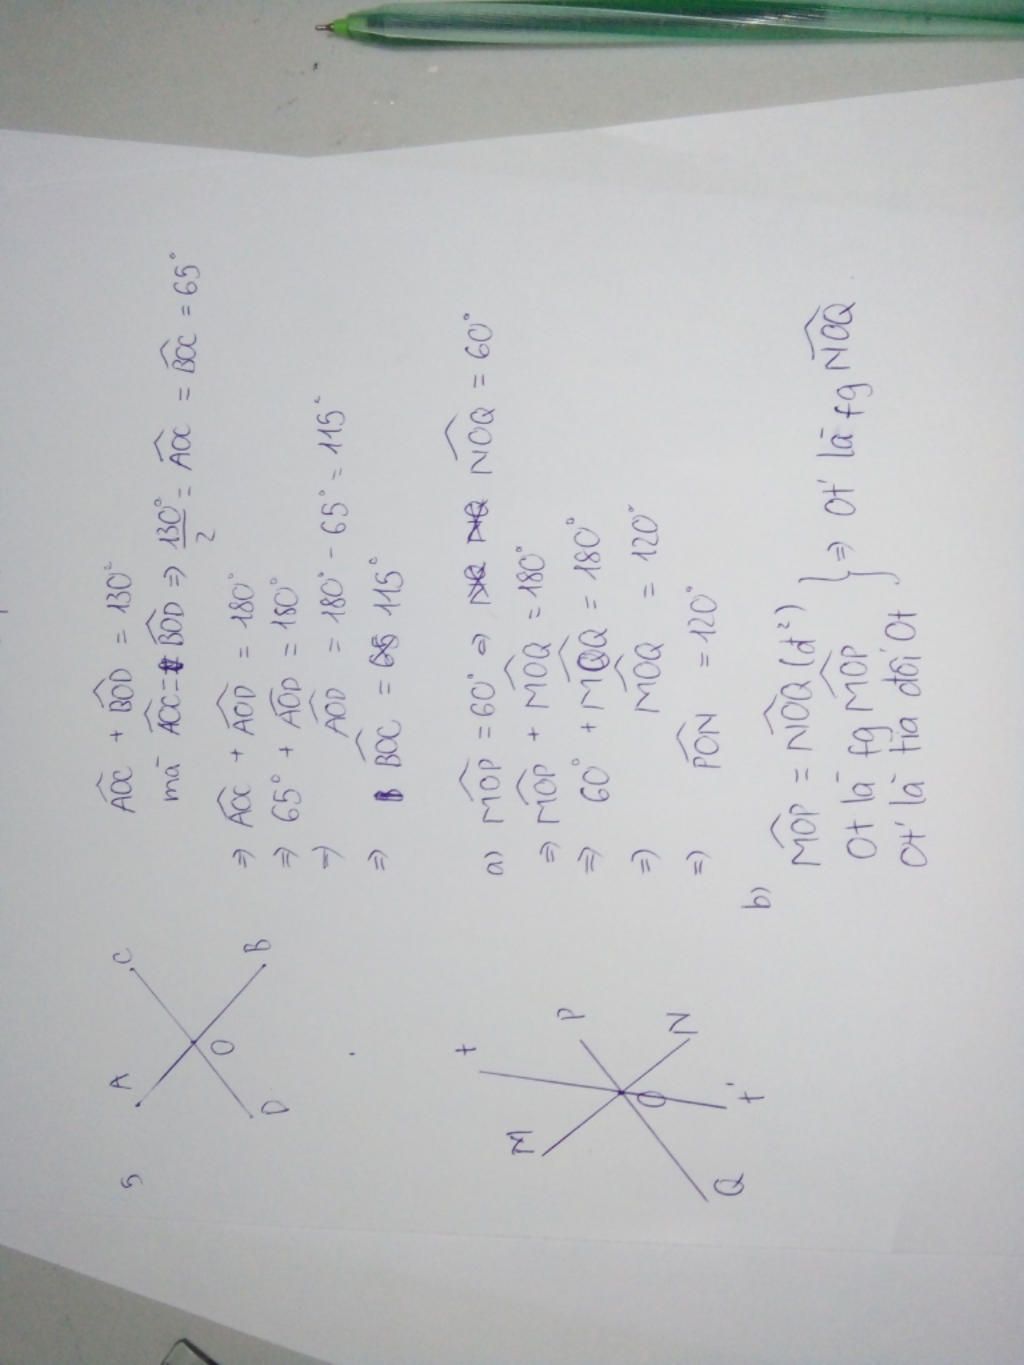 5
A
C
O
D
B
AOC + BOD = 130°
mà AOC = BOD => 130°/2 = AOC = BOC = 65°
=> AOC + AOD = 180°
=> 65° + AOD = 180°
=> AOD = 180° - 65° = 115°
=> BOC = 115°
t
M
P
O
N
Q
t'
a) MOP = 60° => NOQ = 60°
=> MOP + MOQ = 180°
=> 60° + MOQ = 180°
=> MOQ = 120°
=> PON = 120°
b)
MOP = NOQ (đ²)
Ot là fg MOP
Ot' là tia đối Ot
} => Ot' là fg NOQ.